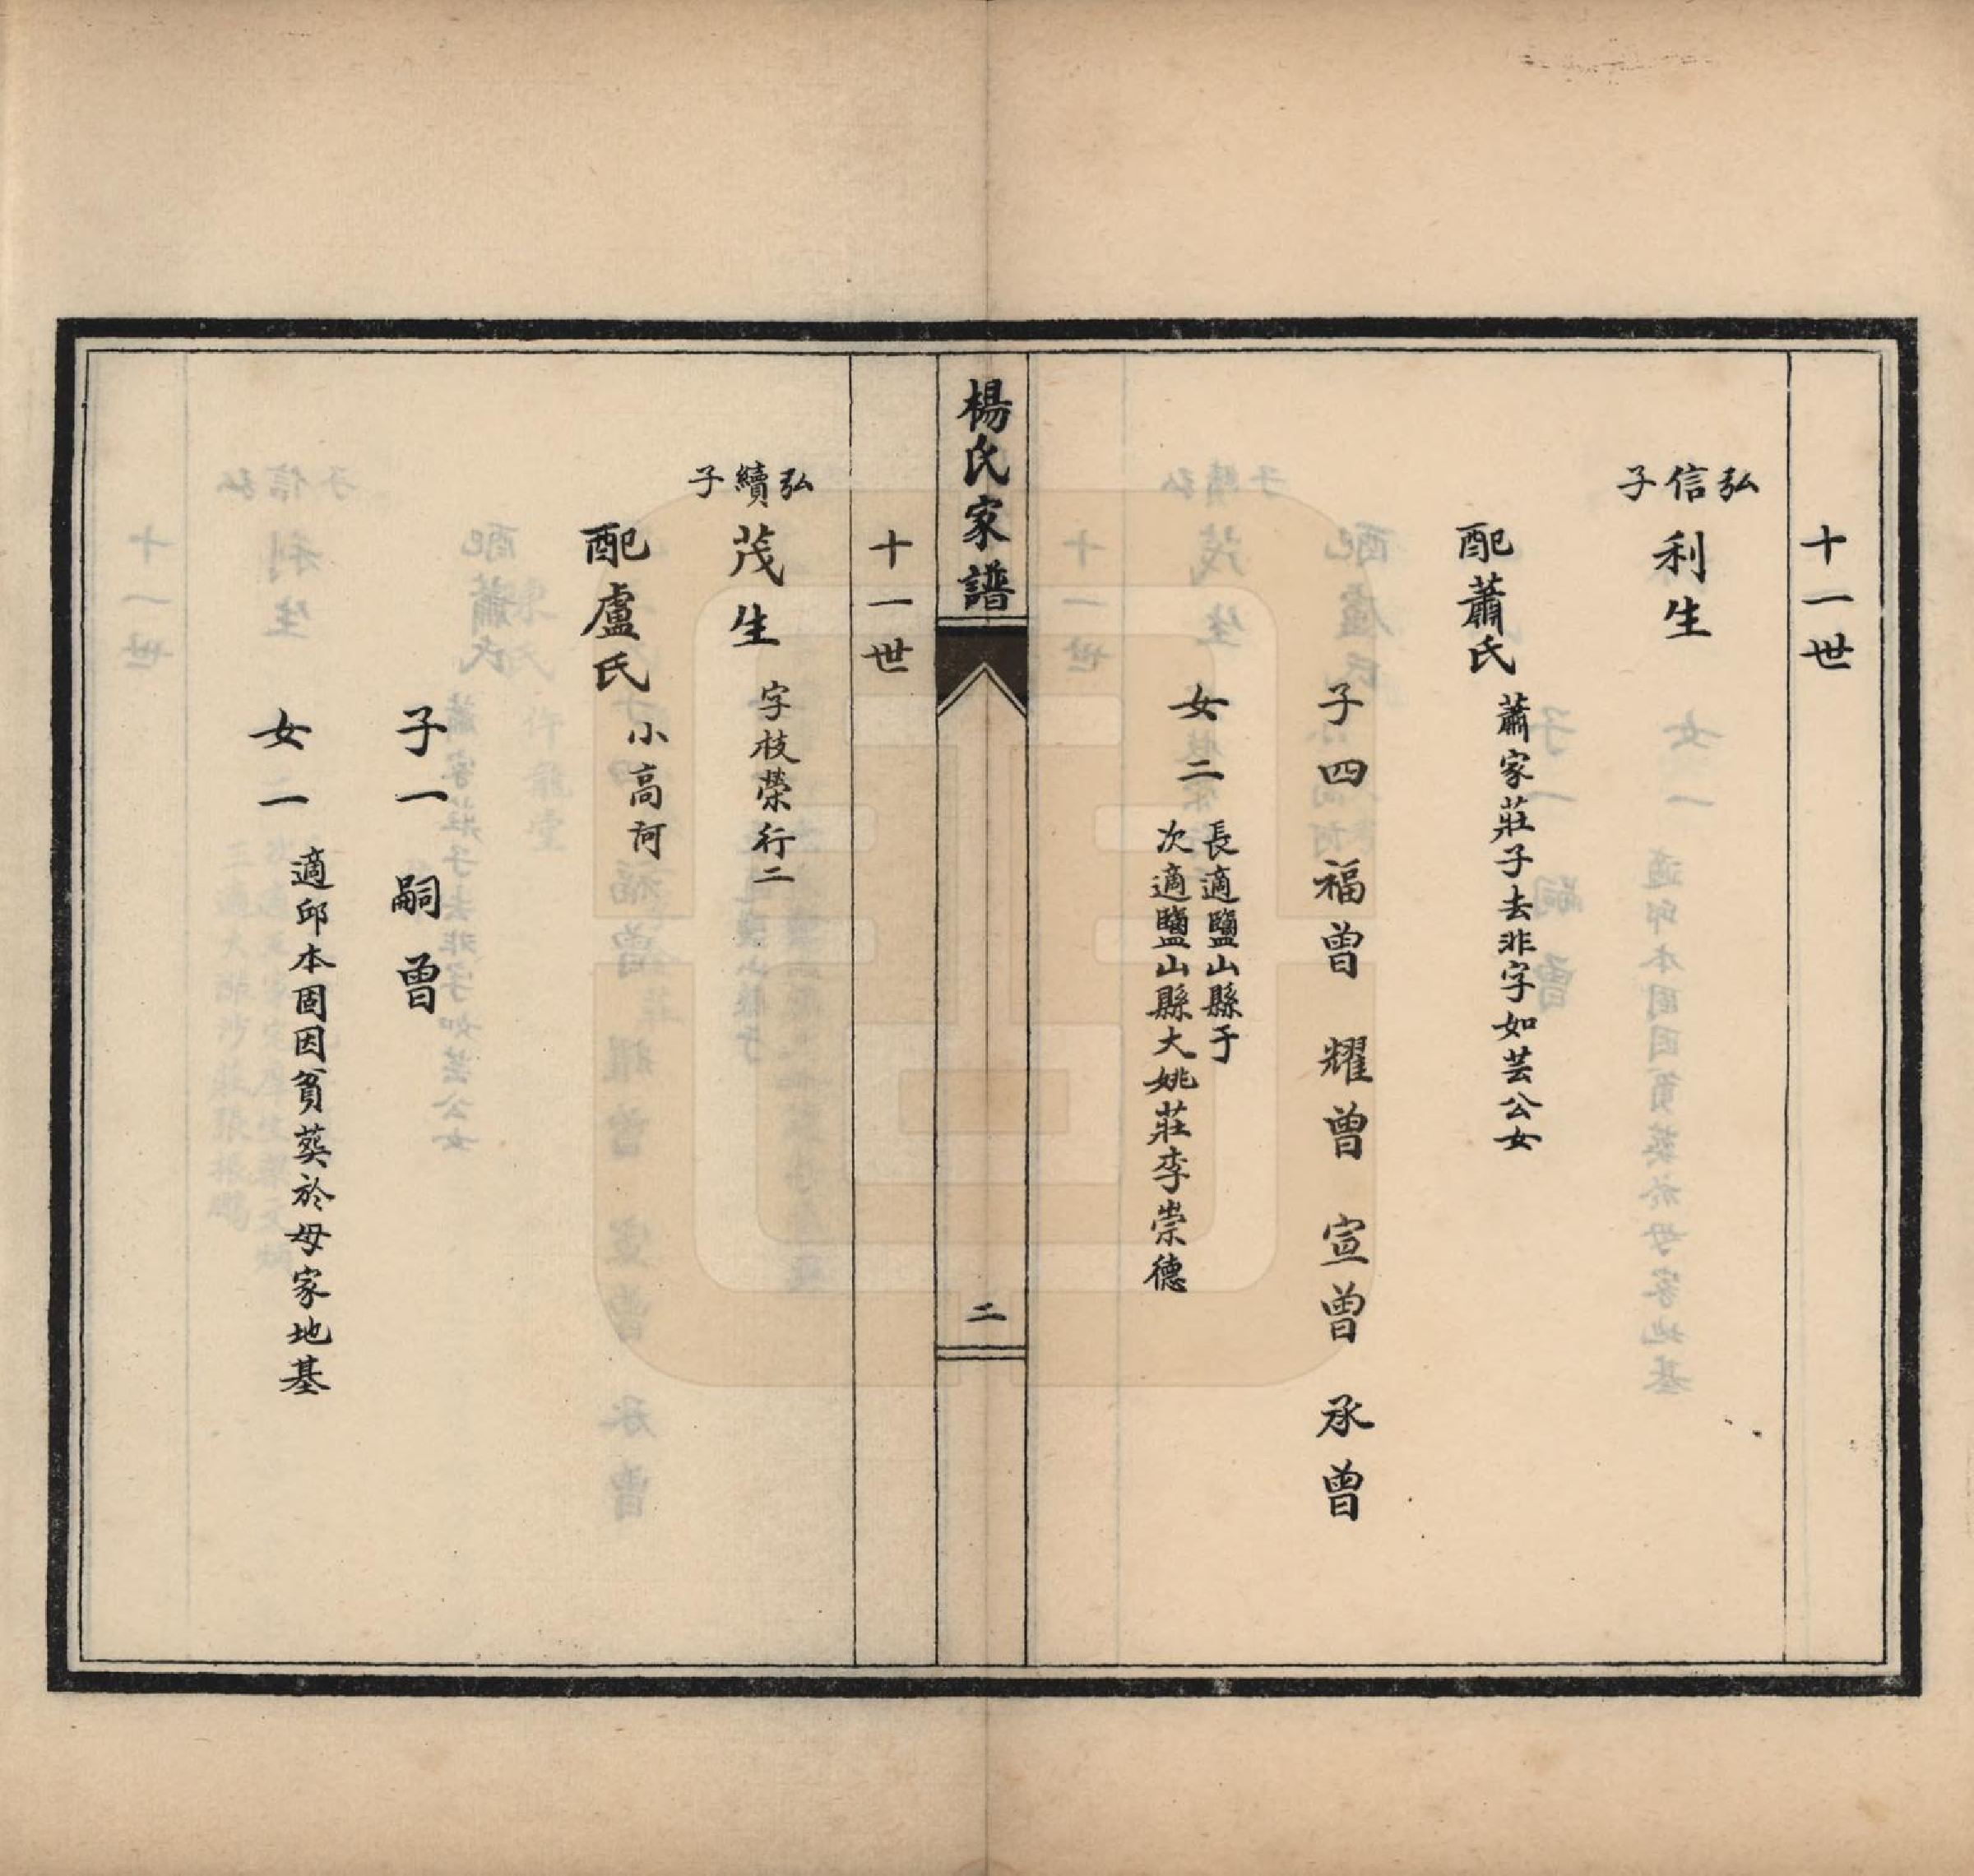 十一世
弘信子
利生
配蕭氏
蕭家莊子去非字如芸公女
子四 福曾 耀曾 宣曾 承曾
女二
長適鹽山縣于
次適鹽山縣大姚莊李崇德
楊氏家譜
二
十一世
弘續子
茂生
字枝榮行二
配盧氏
小高河
子一 嗣曾
女一
適邱本固因貧葬於母家地基